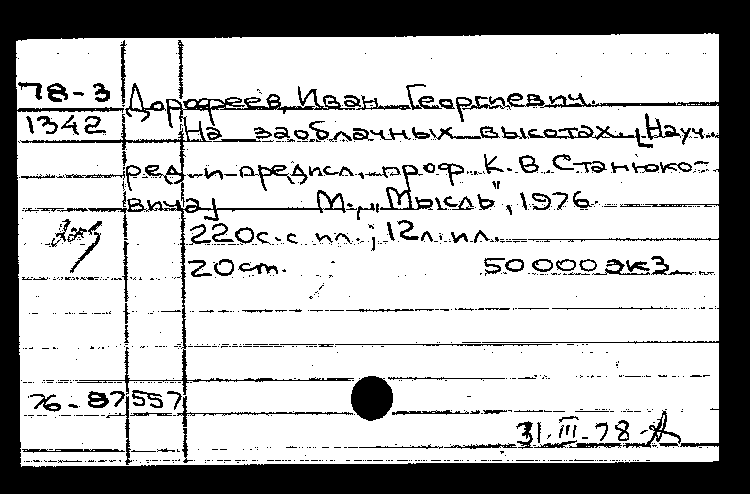 78-3 Дорофеев, Иван Георгиевич.
1342 На заоблачных высотах. [Науч.
ред. и предисл. проф. К. В. Станюко-
вича] М., „Мысль", 1976.
220с. с ил.; 12л. ил.
20см. 50000экз.
76-87557
31.III-78